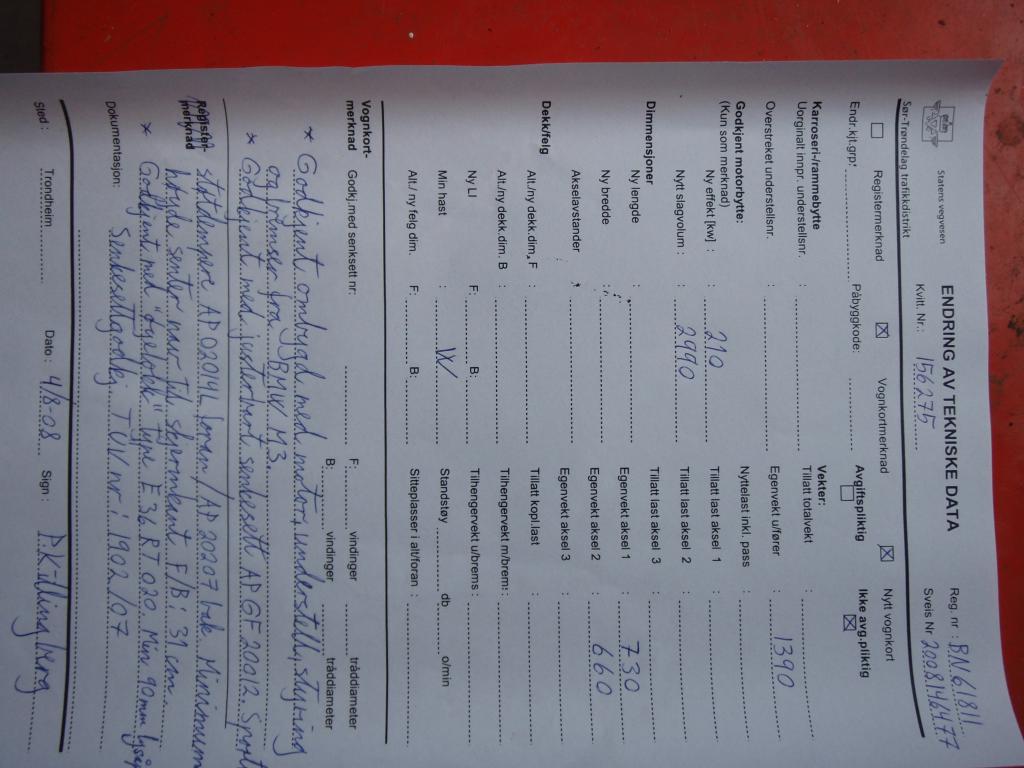 Statens vegvesen
ENDRING AV TEKNISKE DATA
Reg. nr : BN61811
Sør-Trøndelag trafikkdistrikt
Kvitt. Nr.: 156275
Sveis Nr 2008146477
Registermerknad
Vognkortmerknad
Nytt vognkort
Endr.kjt.grp:
Påbyggkode:
Avgiftspliktig
Ikke avg.pliktig
Karrosseri-/rammebytte
Uorginalt innpr. understellsnr. :
Overstreket understellsnr. :
Godkjent motorbytte:
(Kun som merknad)
Ny effekt [kw] : 210
Nytt slagvolum : 2990
Dimmensjoner
Ny lengde :
Ny bredde :
Akselavstander
Dekk/felg
Alt./ny dekk dim, F :
Alt./ny dekk dim. B :
Ny LI F: B:
Min hast : W
Alt./ ny felg dim. F: B:
Vekter:
Tillatt totalvekt :
Egenvekt u/fører : 1390
Nyttelast inkl. pass :
Tillatt last aksel 1 :
Tillatt last aksel 2 :
Tillatt last aksel 3 :
Egenvekt aksel 1 : 730
Egenvekt aksel 2 : 660
Egenvekt aksel 3 :
Tillatt kopl.last :
Tilhengervekt m/brem:
Tilhengervekt u/brems :
Standstøy db o/min
Sitteplasser i alt/foran :
Vognkort-
merknad
Godkj.med senksett nr:
F: vindinger tråddiameter
B: vindinger tråddiameter
* Godkjent ombygd med motor, understell, styring
og bremser fra BMW M3.
* Godkjent med justerbart senkesett AP GF 20012. Sport
Register-
merknad
støtdempere AP 02014L foran / AP 20207 bak. Minimum
høyde senter nav til skjermkant F/B: 31 cm.
* Godkjent med "øyelokk" type E36 RT 020. Min 90 mm
Dokumentasjon: Senkesettgodkj. TÜV nr: 1902/07
Sted : Trondheim
Dato : 4/8-08
Sign : P. Killingberg